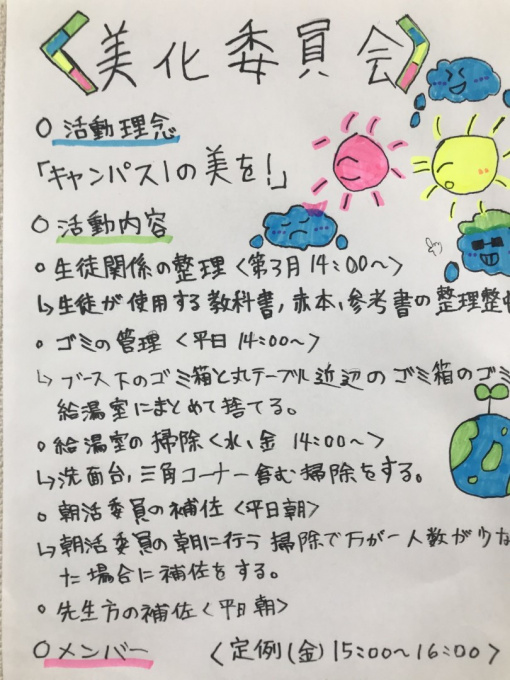 美化委員会
○ 活動理念
「キャンパス1の美を!」
○ 活動内容
○ 生徒関係の整理〈第3月 14:00〜〉
↳生徒が使用する教科書,赤本,参考書の整理整
○ ゴミの管理〈平日 14:00〜〉
↳ブース下のゴミ箱と丸テーブル近辺のゴミ箱のゴミ
給湯室にまとめて捨てる。
○ 給湯室の掃除〈水、金 14:00〜〉
↳洗面台,三角コーナー含む掃除をする。
○ 朝活委員の補佐〈平日朝〉
↳朝活委員の朝に行う掃除で万が一人数が少な
た場合に補佐をする。
○ 先生方の補佐〈平日朝〉
○メンバー 〈定例(金)15:00〜16:00〉